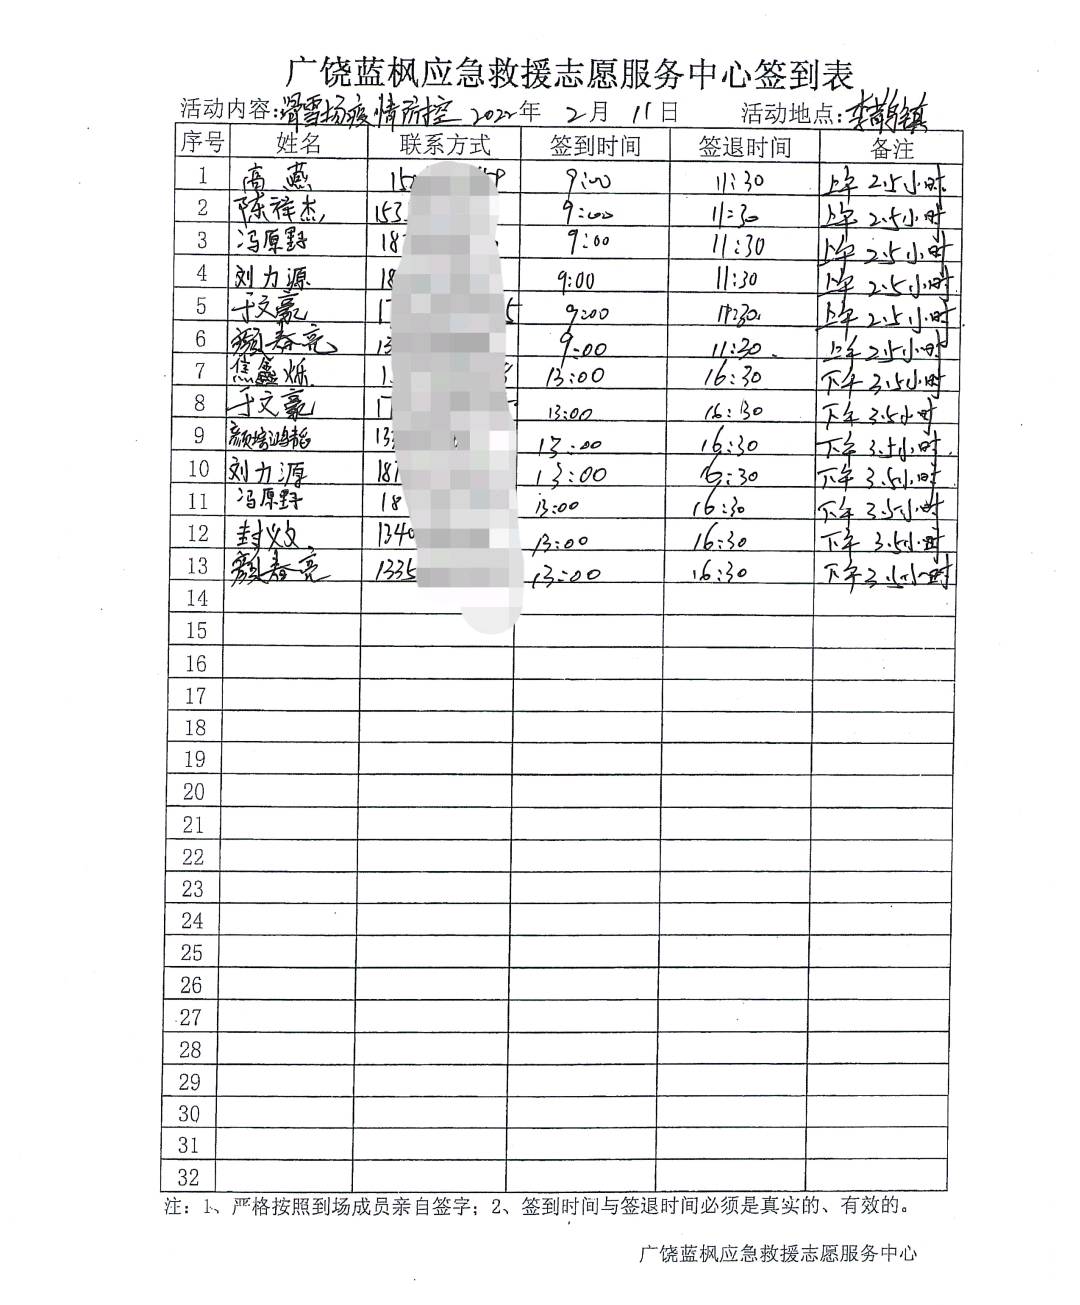 广饶蓝枫应急救援志愿服务中心签到表
活动内容:滑雪场疫情防控 2022年 2月 11日 活动地点:李鹊镇
序号 姓名 联系方式 签到时间 签退时间 备注
1 高燕 15 9:00 11:30 上午2.5小时
2 陈祥杰 153 9:00 11:30 上午2.5小时
3 冯原野 18 9:00 11:30 上午2.5小时
4 刘力源 18 9:00 11:30 上午2.5小时
5 于文豪 17 5 9:00 11:30 上午2.5小时
6 颜春亮 13 9:00 11:30 上午2.5小时
7 焦鑫烁 1 13:00 16:30 下午3.5小时
8 于文豪 17 13:00 16:30 下午3.5小时
9 颜培鸿韬 13 13:00 16:30 下午3.5小时
10 刘力源 18 13:00 16:30 下午3.5小时
11 冯原野 18 13:00 16:30 下午3.5小时
12 封义文 1340 13:00 16:30 下午3.5小时
13 颜春亮 1335 13:00 16:30 下午3.5小时
14
15
16
17
18
19
20
21
22
23
24
25
26
27
28
29
30
31
32
注：1、严格按照到场成员亲自签字；2、签到时间与签退时间必须是真实的、有效的。
广饶蓝枫应急救援志愿服务中心